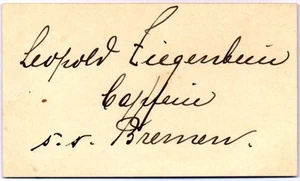 Leopold Ziegenbein
Capitain
s.s. Bremen.